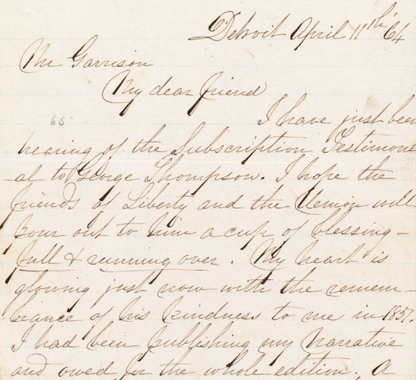 Detroit April 11th 64
Mr Garrison
My dear friend
I have just been
hearing of the Subscription Testimoni
al to George Thompson. I hope the
friends of Liberty and the Union will
pour out to him a cup of blessing –
full & running over. My heart is
glowing just now with the remem-
brance of his kindness to me in 1851.
I had been publishing my narrative
and owed for the whole edition. A